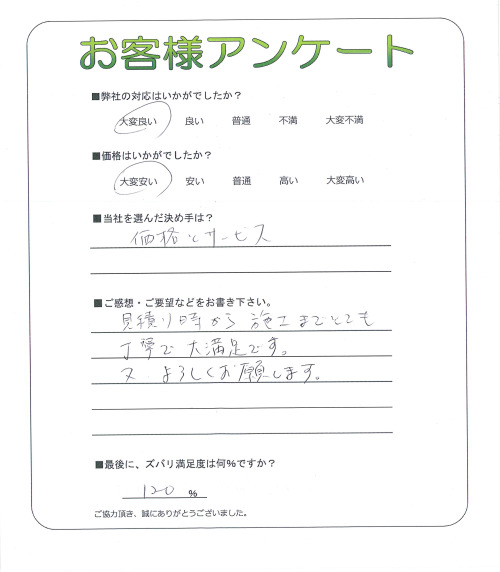 お客様アンケート
■弊社の対応はいかがでしたか？
大変良い 良い 普通 不満 大変不満
■価格はいかがでしたか？
大変安い 安い 普通 高い 大変高い
■当社を選んだ決め手は？
価格とサービス
■ご感想・ご要望などをお書き下さい。
見積り時から施工までとても
丁寧で大満足です。
又、よろしくお願します。
■最後に、ズバリ満足度は何％ですか？
120 ％
ご協力頂き、誠にありがとうございました。